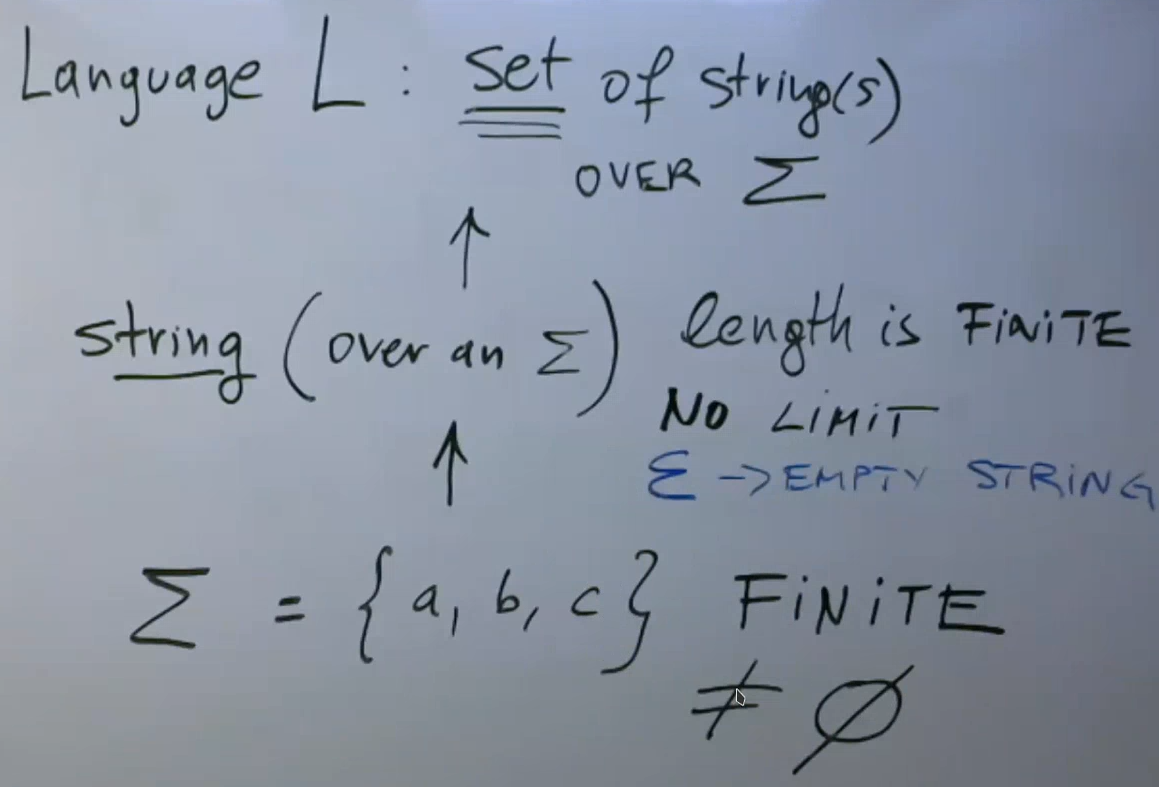 Language L : set of string(s)
OVER Σ
↑
string (over an Σ) length is FiNiTE
NO LiMiT
ε -> EMPTY STRiNG
↑
Σ = {a, b, c} FiNiTE
≠ ∅